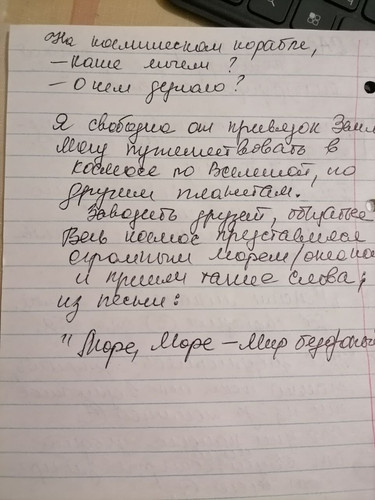 На космическом корабле,
- Каше лечем?
- О чем думаю?
Я свободна от привязок Земл
Могу путешествовать в
космосе по Вселенной, по
другим планетам.
Заводить друзей, общаться
Весь космос представился
огромным морем/океано
и пришли такие слова,
из песни:
"Море, Море - Мир бездонный